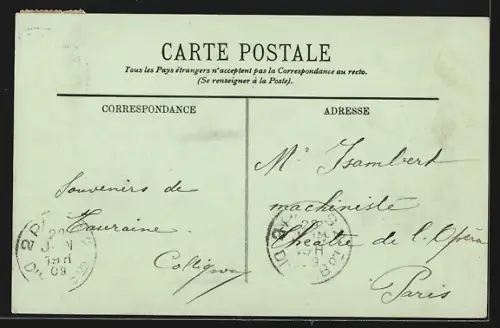 CARTE POSTALE
Tous les Pays étrangers n'acceptent pas la Correspondance au recto.
(Se renseigner à la Poste).
CORRESPONDANCE
ADRESSE
Souvenirs de
Touraine.
Collignon
Mr Isambert
machiniste
Théâtre de l'Opéra
Paris
09